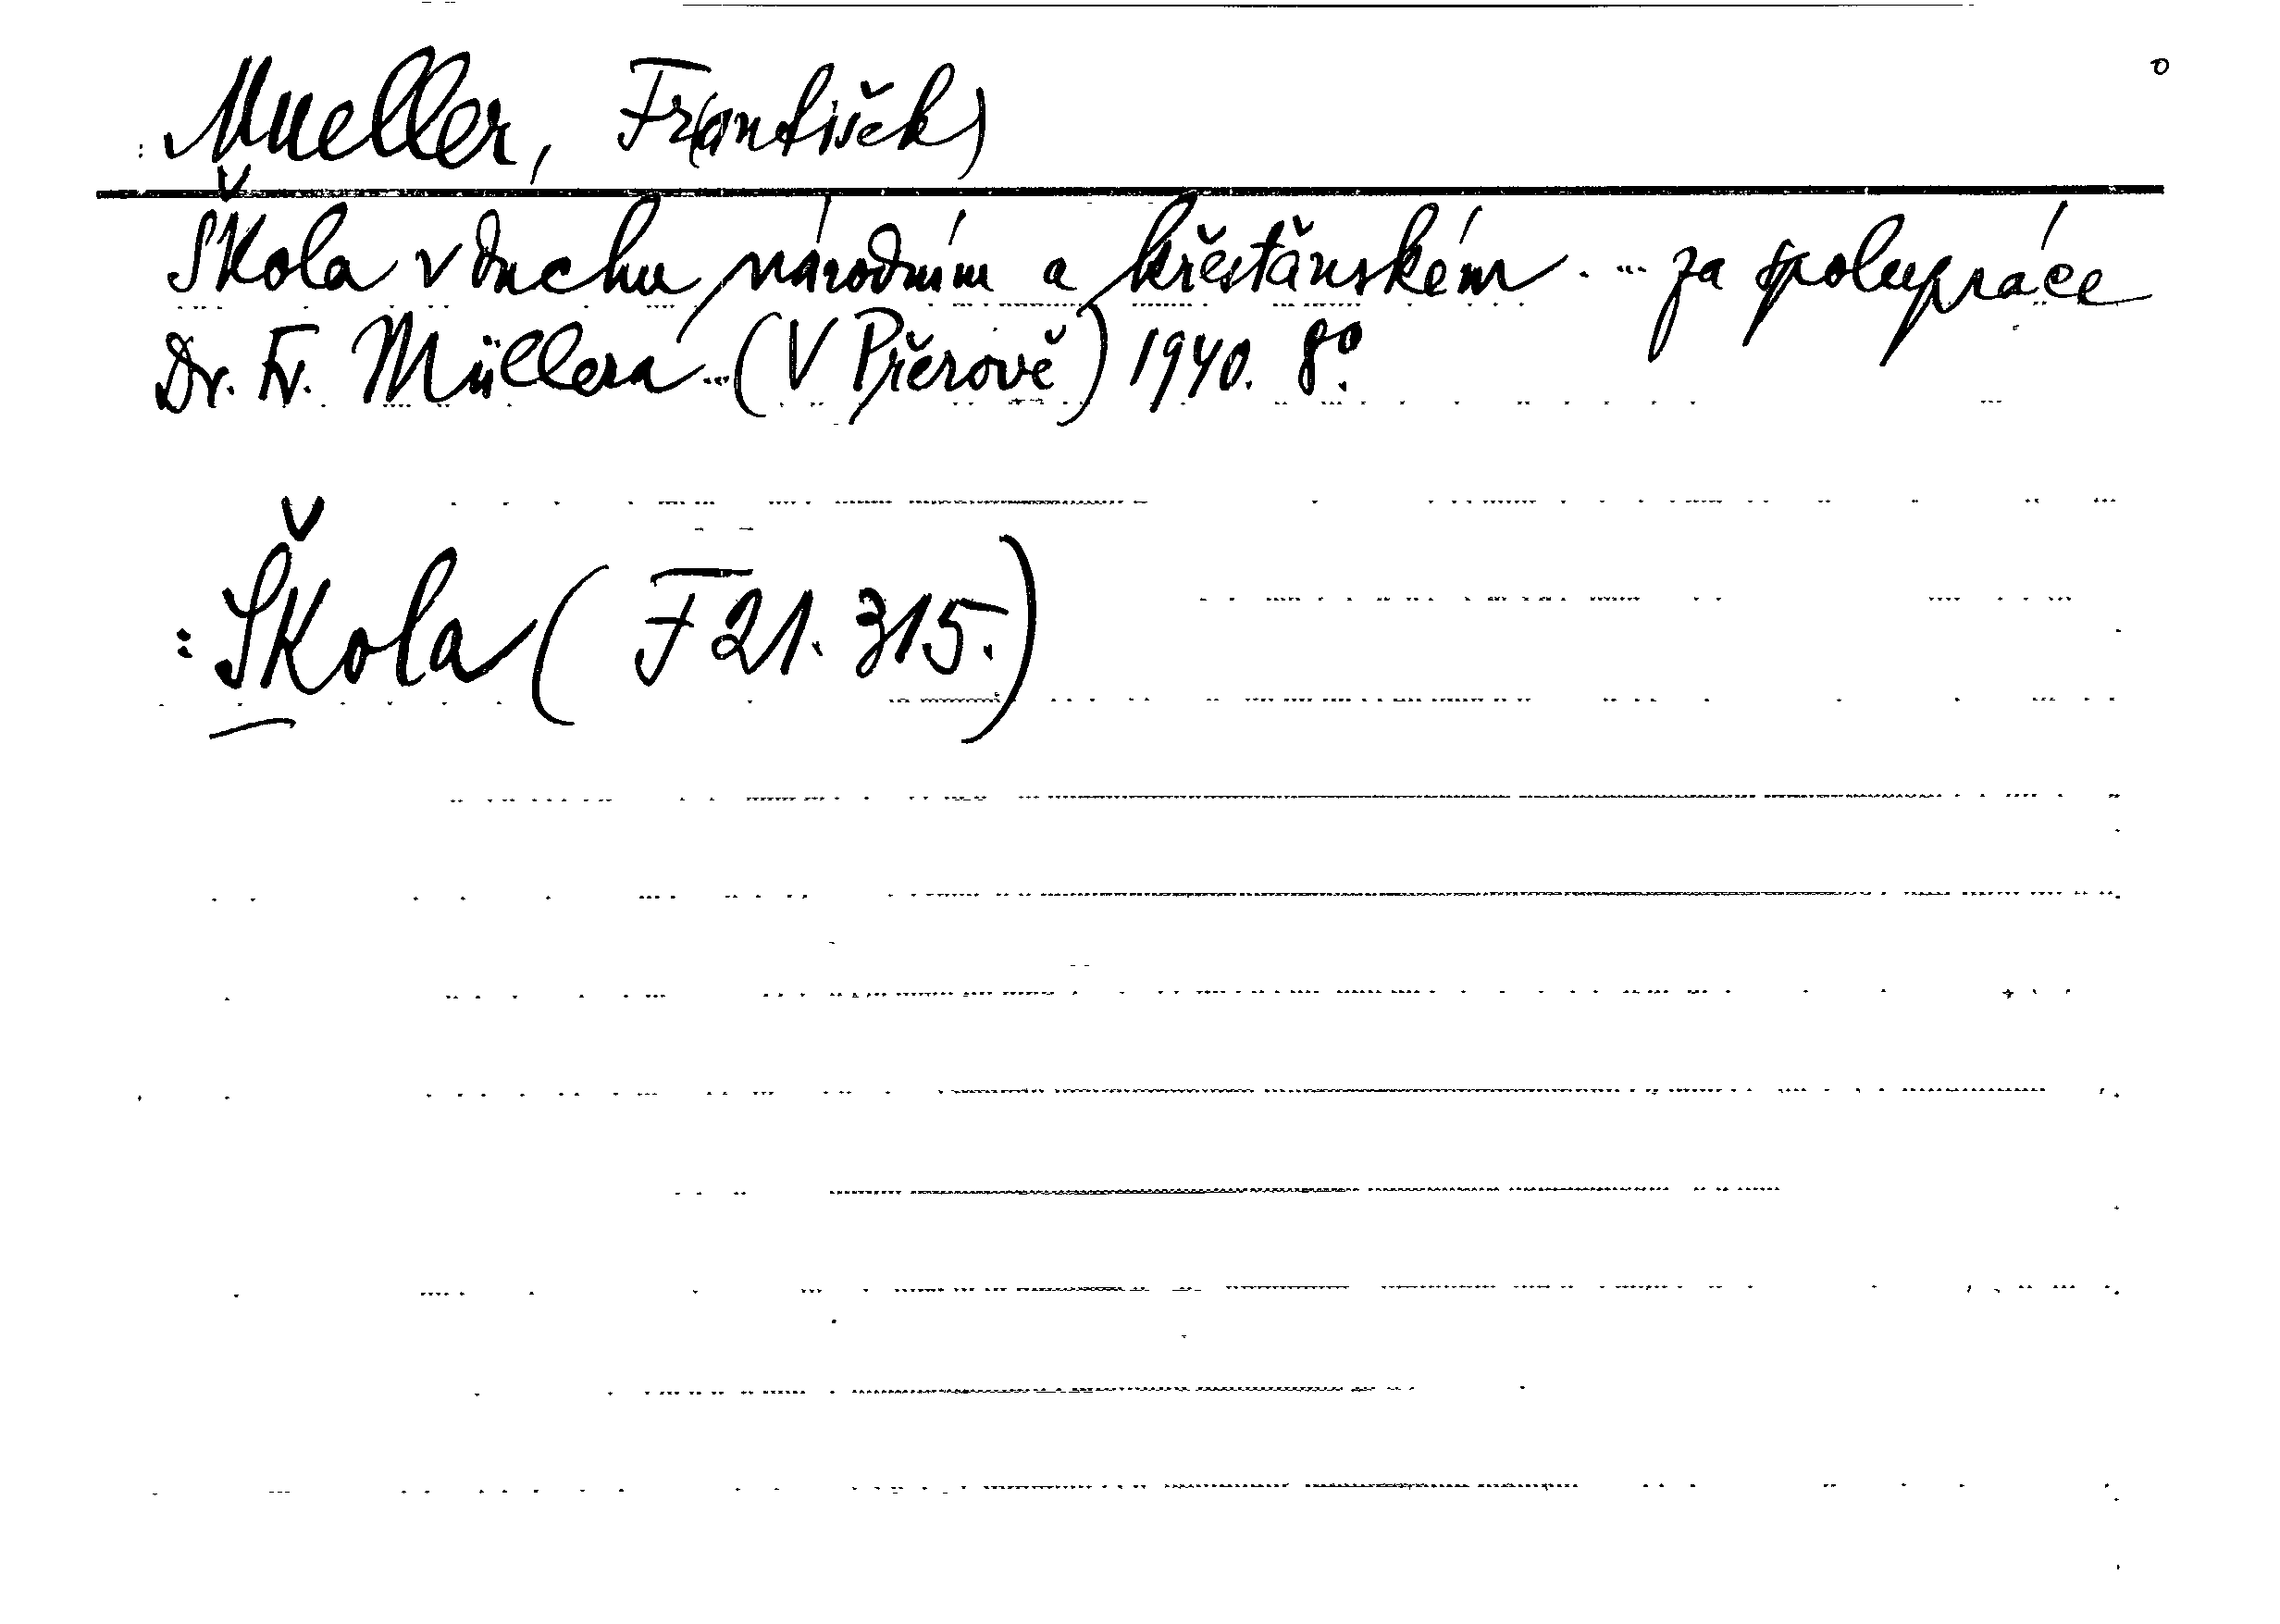 Mueller, Fr(antišek)
Škola v duchu národním a křesťanském. ... za spolupráce
Dr. Fr. Müllera ... (V Přerově) 1940. 8°.
: Škola ( F 21. 315. )